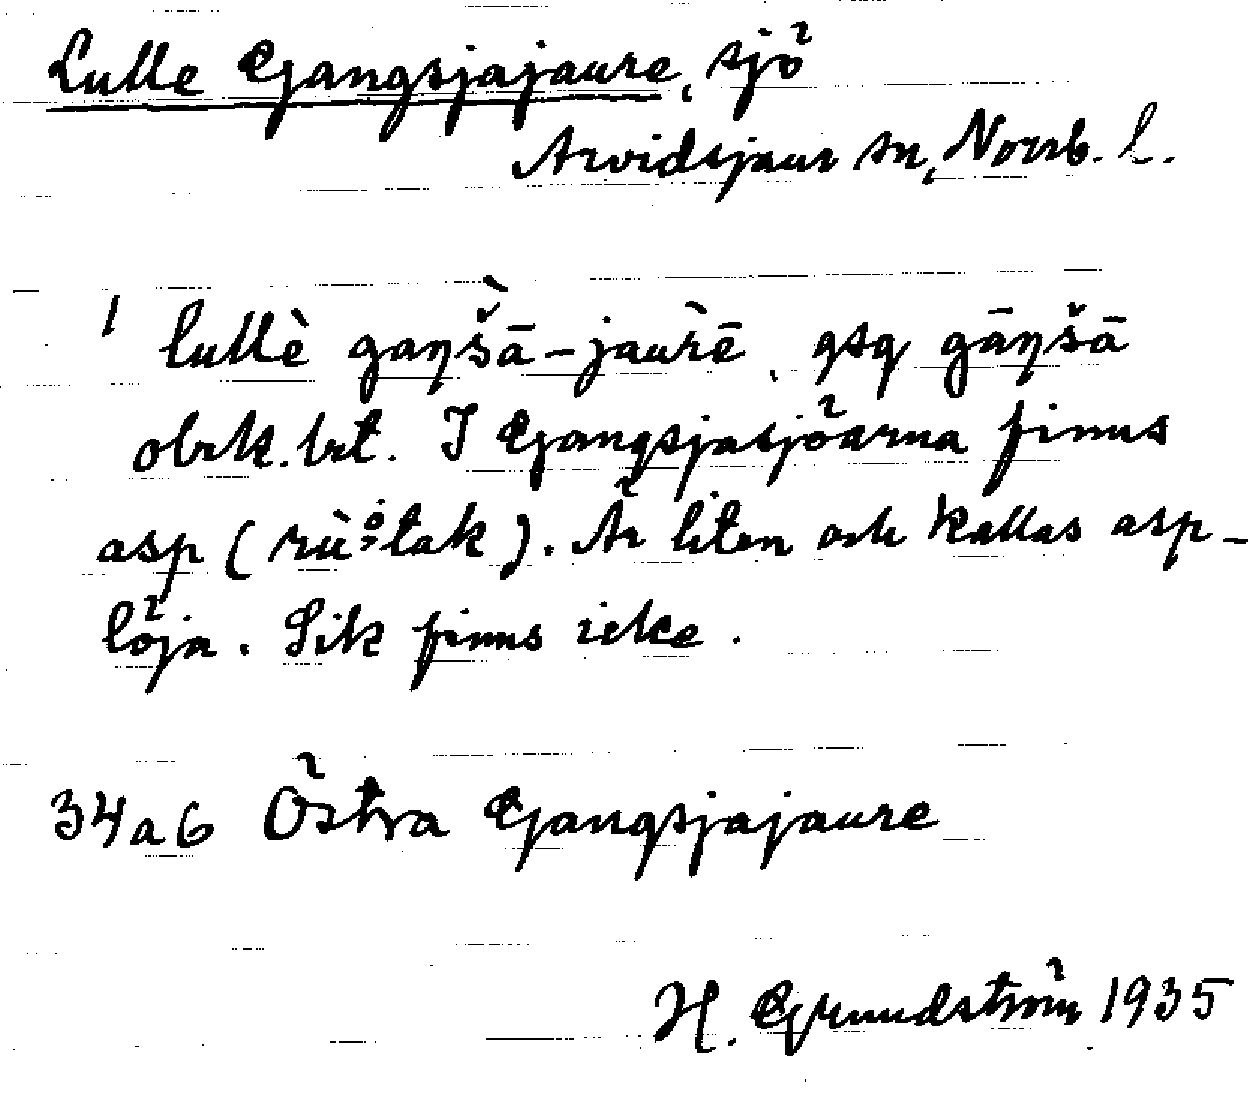 Lulle Gjangsjajaure, sjö
Arvidsjaur sn, Norrb. l.
1 lullè gaŋšā-jaùrē, gsg gāŋšā
obek. bet. I Gjangsjasjöarna finns
asp ( ). Är liten och kallas asp-
löja. Sik finns icke.
34a6 Östra Gjangsjajaure
H. Grundström 1935